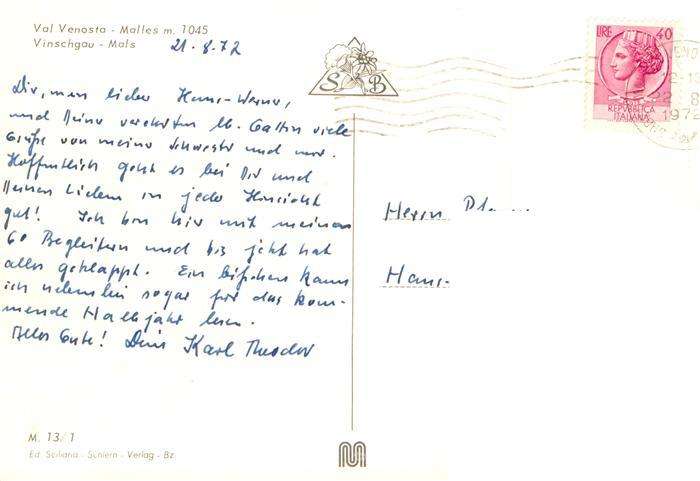 Val Venosta - Malles m. 1045
Vinschgau - Mals
21.8.72
Dir, mein lieber Hans-Werner,
und Deiner verehrten lb. Gattin viele
Grüße von meiner Schwester und mir.
Hoffentlich geht es bei Dir und
Deinen Lieben in jeder Hinsicht
gut! Ich bin hier mit meinen
60 Begleitern und bis jetzt hat
alles geklappt. Ein bißchen kann
ich nebenbei sogar für das kom-
mende Halbjahr lesen.
Alles Gute! Dein Karl Theodor
S B
LIRE 40
REPVBBLICA
ITALIANA
22 8
1972
Herrn
Hans-
M. 13/1
Ed. Siciliana - Schlern - Verlag - Bz